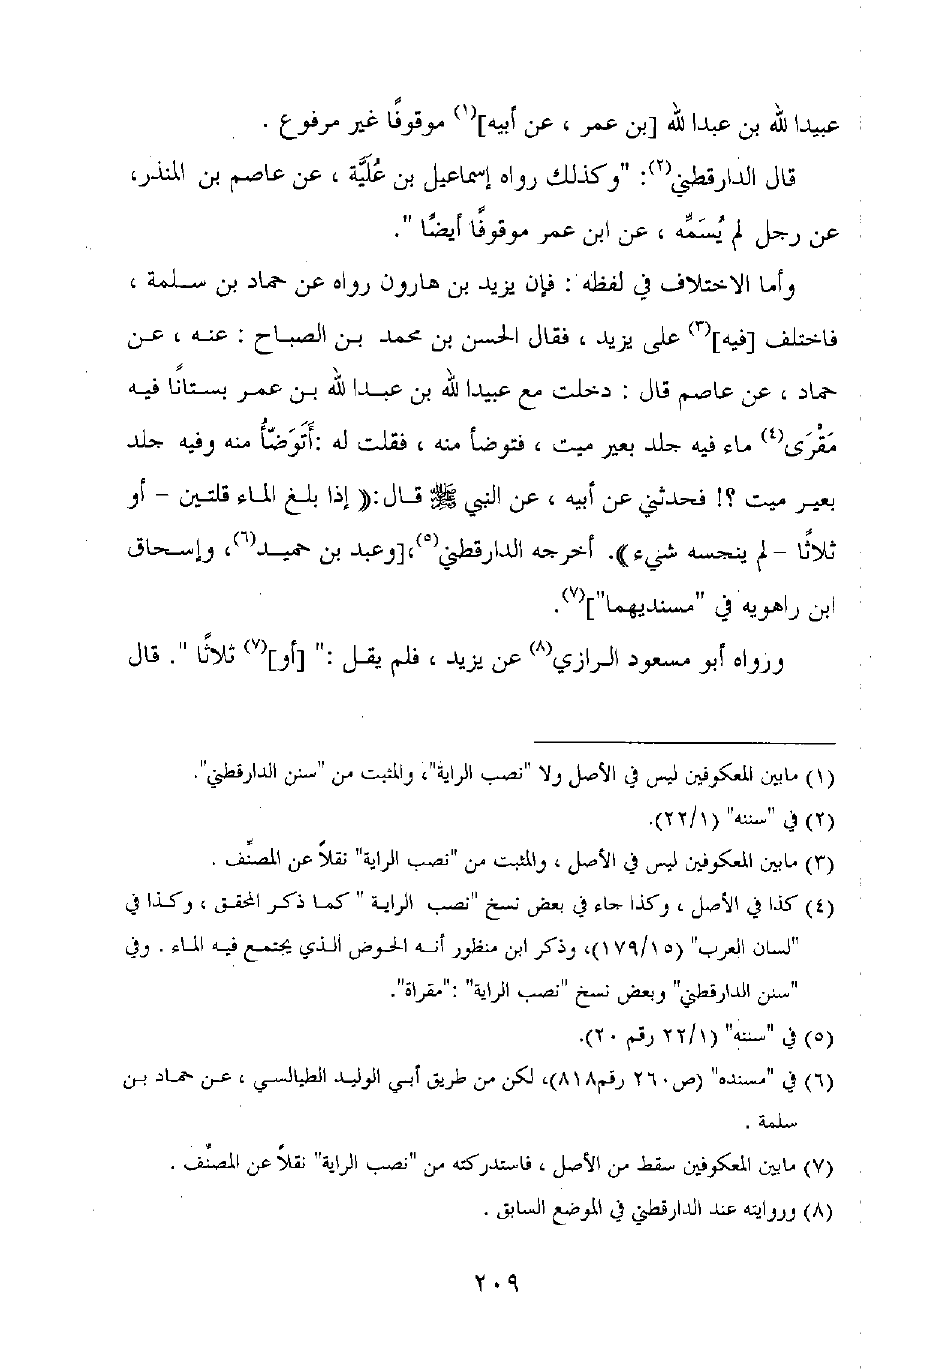 عبيدا لله بن عبدا لله [بن عمر ، عن أبيه](١) موقوفًا غير مرفوع .
قال الدارقطني(٢): "وكذلك رواه إسماعيل بن عُليَّة ، عن عاصم بن المنذر،
عن رجل لم يُسَمِّه ، عن ابن عمر موقوفًا أيضًا ".
وأما الاختلاف في لفظه : فإن يزيد بن هارون رواه عن حماد بن سلمة ،
فاختلف [فيه](٣) على يزيد ، فقال الحسن بن محمد بن الصباح : عنه ، عن
حماد ، عن عاصم قال : دخلت مع عبيدا لله بن عبدا لله بن عمر بستانًا فيه
مَقْرَى(٤) ماء فيه جلد بعير ميت ، فتوضأ منه ، فقلت له :أَتَوَضّأُ منه وفيه جلد
بعير ميت ؟! فحدثني عن أبيه ، عن النبي ﷺ قال :(( إذا بلغ الماء قلتين - أو
ثلاثًا - لم ينجسه شيء )). أخرجه الدارقطني(٥)،[وعبد بن حميد(٦)، وإسحاق
ابن راهويه في "مسنديهما"](٧).
ورواه أبو مسعود الرازي(٨) عن يزيد ، فلم يقل :" [أو](٧) ثلاثًا ". قال
(١) مابين المعكوفين ليس في الأصل ولا "نصب الراية"، والمثبت من "سنن الدارقطني".
(٢) في "سننه" (٢٢/١).
(٣) مابين المعكوفين ليس في الأصل ، والمثبت من "نصب الراية" نقلاً عن المصنِّف .
(٤) كذا في الأصل ، وكذا جاء في بعض نسخ "نصب الراية " كما ذكر المحقق ، وكذا في
"لسان العرب" (١٧٩/١٥)، وذكر ابن منظور أنه الحوض الذي يجتمع فيه الماء . وفي
"سنن الدارقطني" وبعض نسخ "نصب الراية" :"مقراة".
(٥) في "سننه" (٢٢/١ رقم ٢٠).
(٦) في "مسنده" (ص٢٦٠ رقم٨١٨)، لكن من طريق أبي الوليد الطيالسي ، عن حماد بن
سلمة .
(٧) مابين المعكوفين سقط من الأصل ، فاستدركته من "نصب الراية" نقلاً عن المصنِّف .
(٨) وروايته عند الدارقطني في الموضع السابق .
٢٠٩